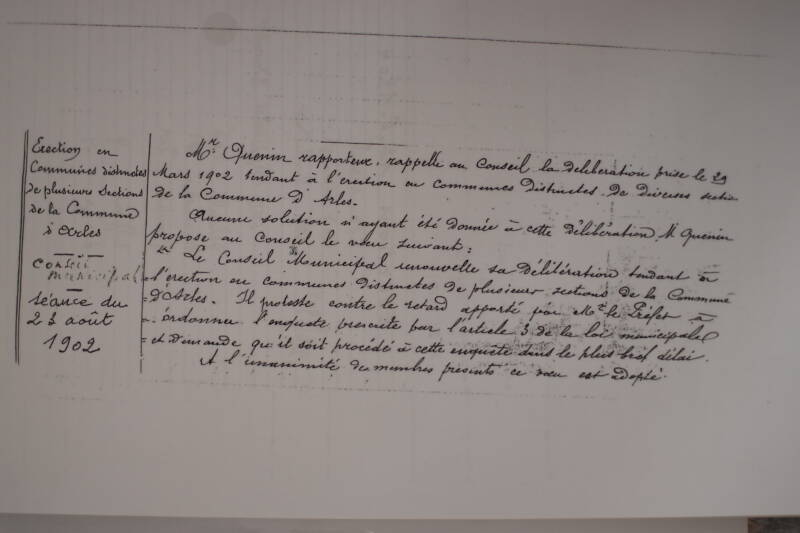 Erection en
Communes distinctes
de plusieurs Sections
de la Commune
d'Arles
Conseil
municipal
séance du
23 août
1902
Mr. Quenin rapporteur, rappelle au Conseil la délibération prise le 29
Mars 1902 tendant à l'erection en communes distinctes de diverses sections
de la Commune d'Arles.
Aucune solution n'ayant été donnée à cette délibération, Mr Quenin
propose au Conseil le vœu suivant:
"Le Conseil Municipal renouvelle sa délibération tendant à
l'erection en communes distinctes de plusieurs sections de la Commune
d'Arles. Il proteste contre le retard apporté par Mr. le Préfet à
ordonner l'enquete prescrite par l'article 3 de la loi municipale
et demande qu'il soit procédé à cette enquete dans le plus bref délai.
A l'unanimité des membres présents ce vœu est adopté.